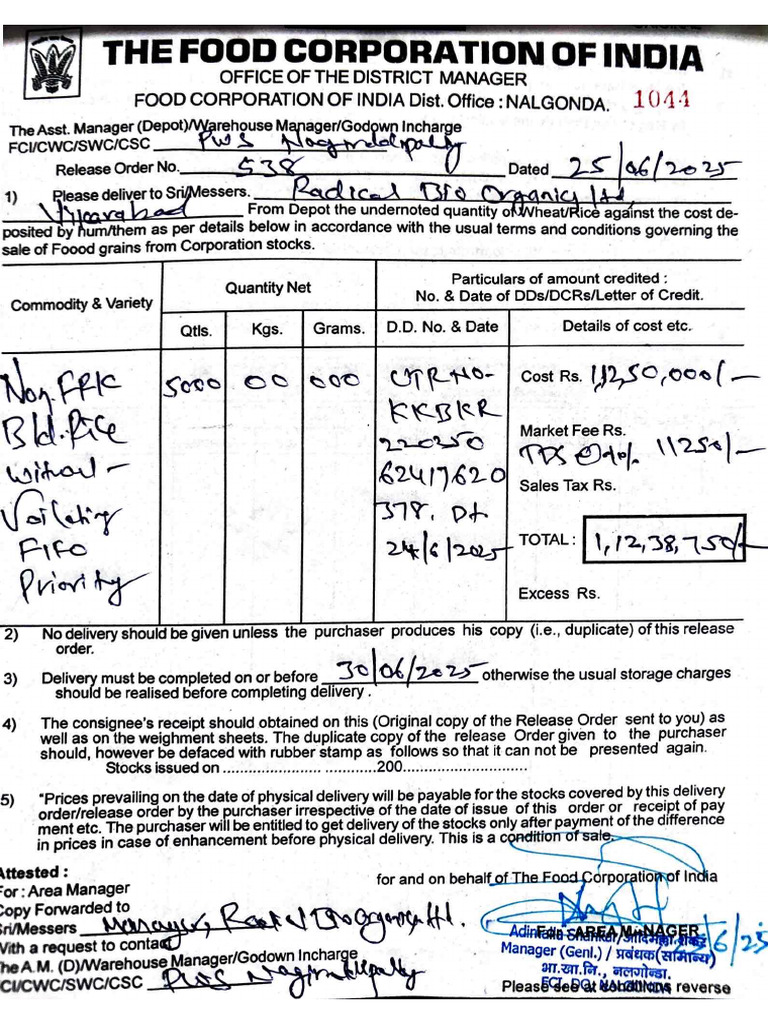 THE FOOD CORPORATION OF INDIA
OFFICE OF THE DISTRICT MANAGER
FOOD CORPORATION OF INDIA Dist. Office : NALGONDA. 1044
The Asst. Manager (Depot)/Warehouse Manager/Godown Incharge
FCI/CWC/SWC/CSC PWS
Release Order No. 538 Dated 25/06/2025
1) Please deliver to Sri/Messers. Radical Bio Organics Ltd,
From Depot the undernoted quantity of Wheat/Rice against the cost de-
posited by hum/them as per details below in accordance with the usual terms and conditions governing the
sale of Foood grains from Corporation stocks.
Commodity & Variety
Quantity Net
Particulars of amount credited :
No. & Date of DDs/DCRs/Letter of Credit.
Qtls. Kgs. Grams. D.D. No. & Date Details of cost etc.
Non.FRK 5000 00 000 UTR No- Cost Rs. 1,12,50,000/-
Bld.Rice KKBKR Market Fee Rs.
220250 TDS @ 0.1% 11250/-
without 62417620 Sales Tax Rs.
Voilating 378. Dt
FIFO 24/6/2025 TOTAL : 1,12,38,750/-
Priority Excess Rs.
2) No delivery should be given unless the purchaser produces his copy (i.e., duplicate) of this release
order.
3) Delivery must be completed on or before 30/06/2025 otherwise the usual storage charges
should be realised before completing delivery .
4) The consignee's receipt should obtained on this (Original copy of the Release Order sent to you) as
well as on the weighment sheets. The duplicate copy of the release Order given to the purchaser
should, however be defaced with rubber stamp as follows so that it can not be presented again.
Stocks issued on ........................ ......................200............................
5) "Prices prevailing on the date of physical delivery will be payable for the stocks covered by this delivery
order/release order by the purchaser irrespective of the date of issue of this order or receipt of pay
ment etc. The purchaser will be entitled to get delivery of the stocks only after payment of the difference
in prices in case of enhancement before physical delivery. This is a condition of sale.
Attested :
For : Area Manager
for and on behalf of The Food Corporation of India
Copy Forwarded to
Sri/Messers Manager, Radical Bio Organics Ltd.
With a request to contact
AREA MANAGER
Manager (Genl.) / प्रबंधक(सामान्य)
The A.M. (D)/Warehouse Manager/Godown Incharge
भा.खा.नि., नलगोन्डा.
FCI/CWC/SWC/CSC PWS
FCI, DO, NALGONDA
Please see at conditions reverse